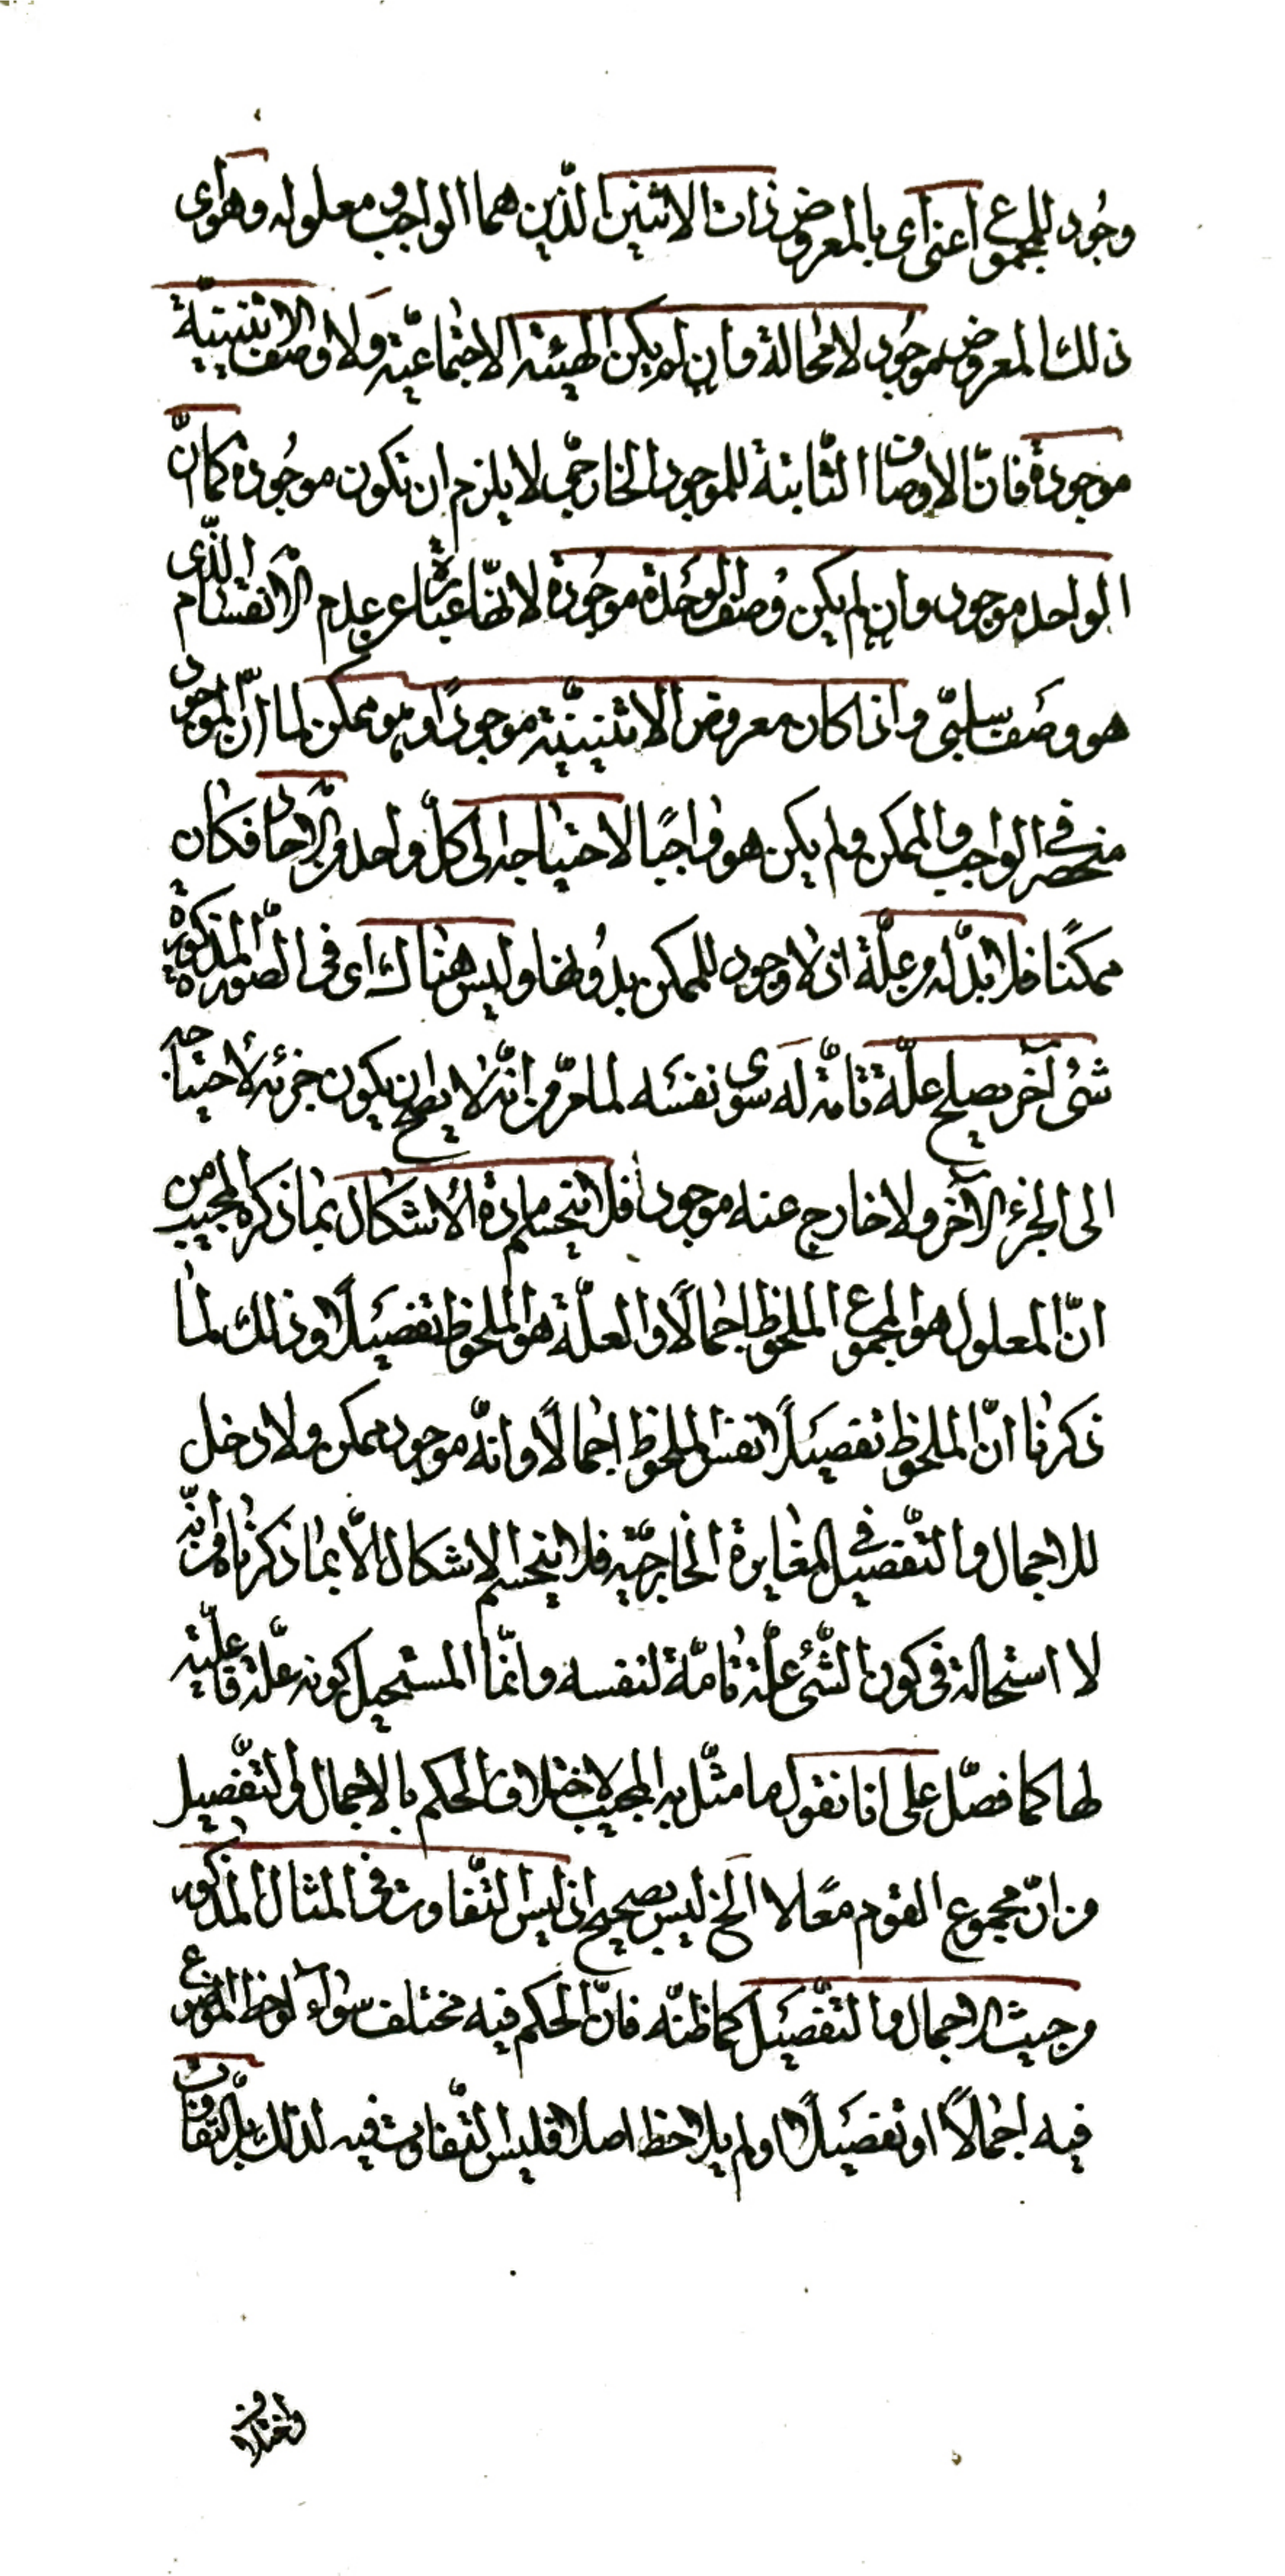 وجُود للمجموع اعنى اى بالمعروض ذات الاثنين الذّين هما الواجب ومعلوله وهو اى
ذلك المعروض موجُود لا محالة وان لم يكن الهيئة الاجتماعيّة ولا وصف الاثنينيّة
موجودة فانّ الاوصاف الثّابتة للموجود الخارجى لا يلزم ان تكون موجُودة كما انّ
الواحد موجود وان لم يكن وُصف الوحدة موجُودة لانّها عبارة عن عدم الانقسام الذّى
هو وصَف سلبىّ واذا كان معروض الاثنينيّة موجودًا وهو ممكن لما انّ الموجود
منحصر فى الواجب والممكن ولم يكن هو واجبًا لاحتياجه الى كلّ واحد من الاحاد فكان
ممكنًا فلا بدّ له من علّة اذ لا وجود للممكن بدُونها وليس هناك اى فى الصّورة المذكورة
شئ آخر يصلح علّة تامّة له سوى نفسَه لما مرّ من انّه لا يصلح ان يكون جزئه لاحتياجه
الى الجزء الآخر ولا خارج عنه موجود فلا ينحسم مادة الاشكال بما ذكره المجيب من
انّ المعلول هو المجموع الملحوظ اجمالًا والعلّة هو الملحوظ تفصيَلًا وذلك لما
ذكرنا انّ الملحوظ تفصيَلًا نفس الملحوظ اجمالًا وانّه موجود ممكن ولا دخل
للاجمال والتّفصيل فى المغايرة الخارجيّة فلا ينحسم الاشكال الّا بما ذكرناه من انّه
لا استحالة فى كون الشّئ علّة تامّة لنفسه وانّما المستحيل كونه علّة فاعليّة
لها كما فصّل على انا نقول ما مثّل به المجيب لاختلاف الحكم بالاجمال والتّفصيل
من انّ مجموع القوم معًا لا الخ ليس بصحيح اذ ليس التّفاوت فى المثال المذكور
من حيث الاجمال والتّفصيَل كما ظنّه فانّ الحكم فيه مختلف سواء لوحظ الموضوع
فيه اجمالًا او تفصيَلًا او لم يلاحظ اصلا فليس التّفاوت فيه لذلك بل التّفاوت
واختلاف